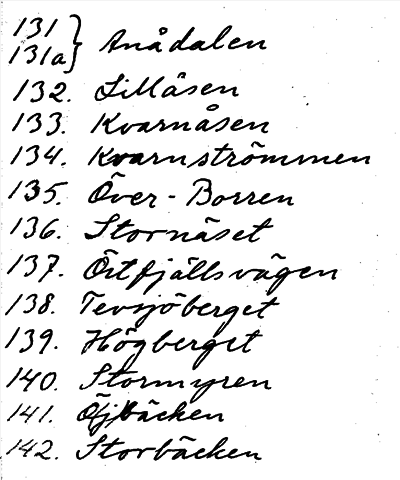 131
131a } Anådalen
132. Lillåsen
133. Kvarnåsen
134. Kvarnströmmen
135. Över-Borren
136. Stornäset
137. Örtfjällsvägen
138. Tevsjöberget
139. Högberget
140. Stormyren
141. Öjbäcken
142. Storbäcken